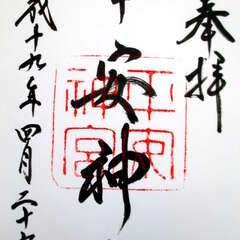 奉拝
平安神
成十九年四月二十
平安
神宮